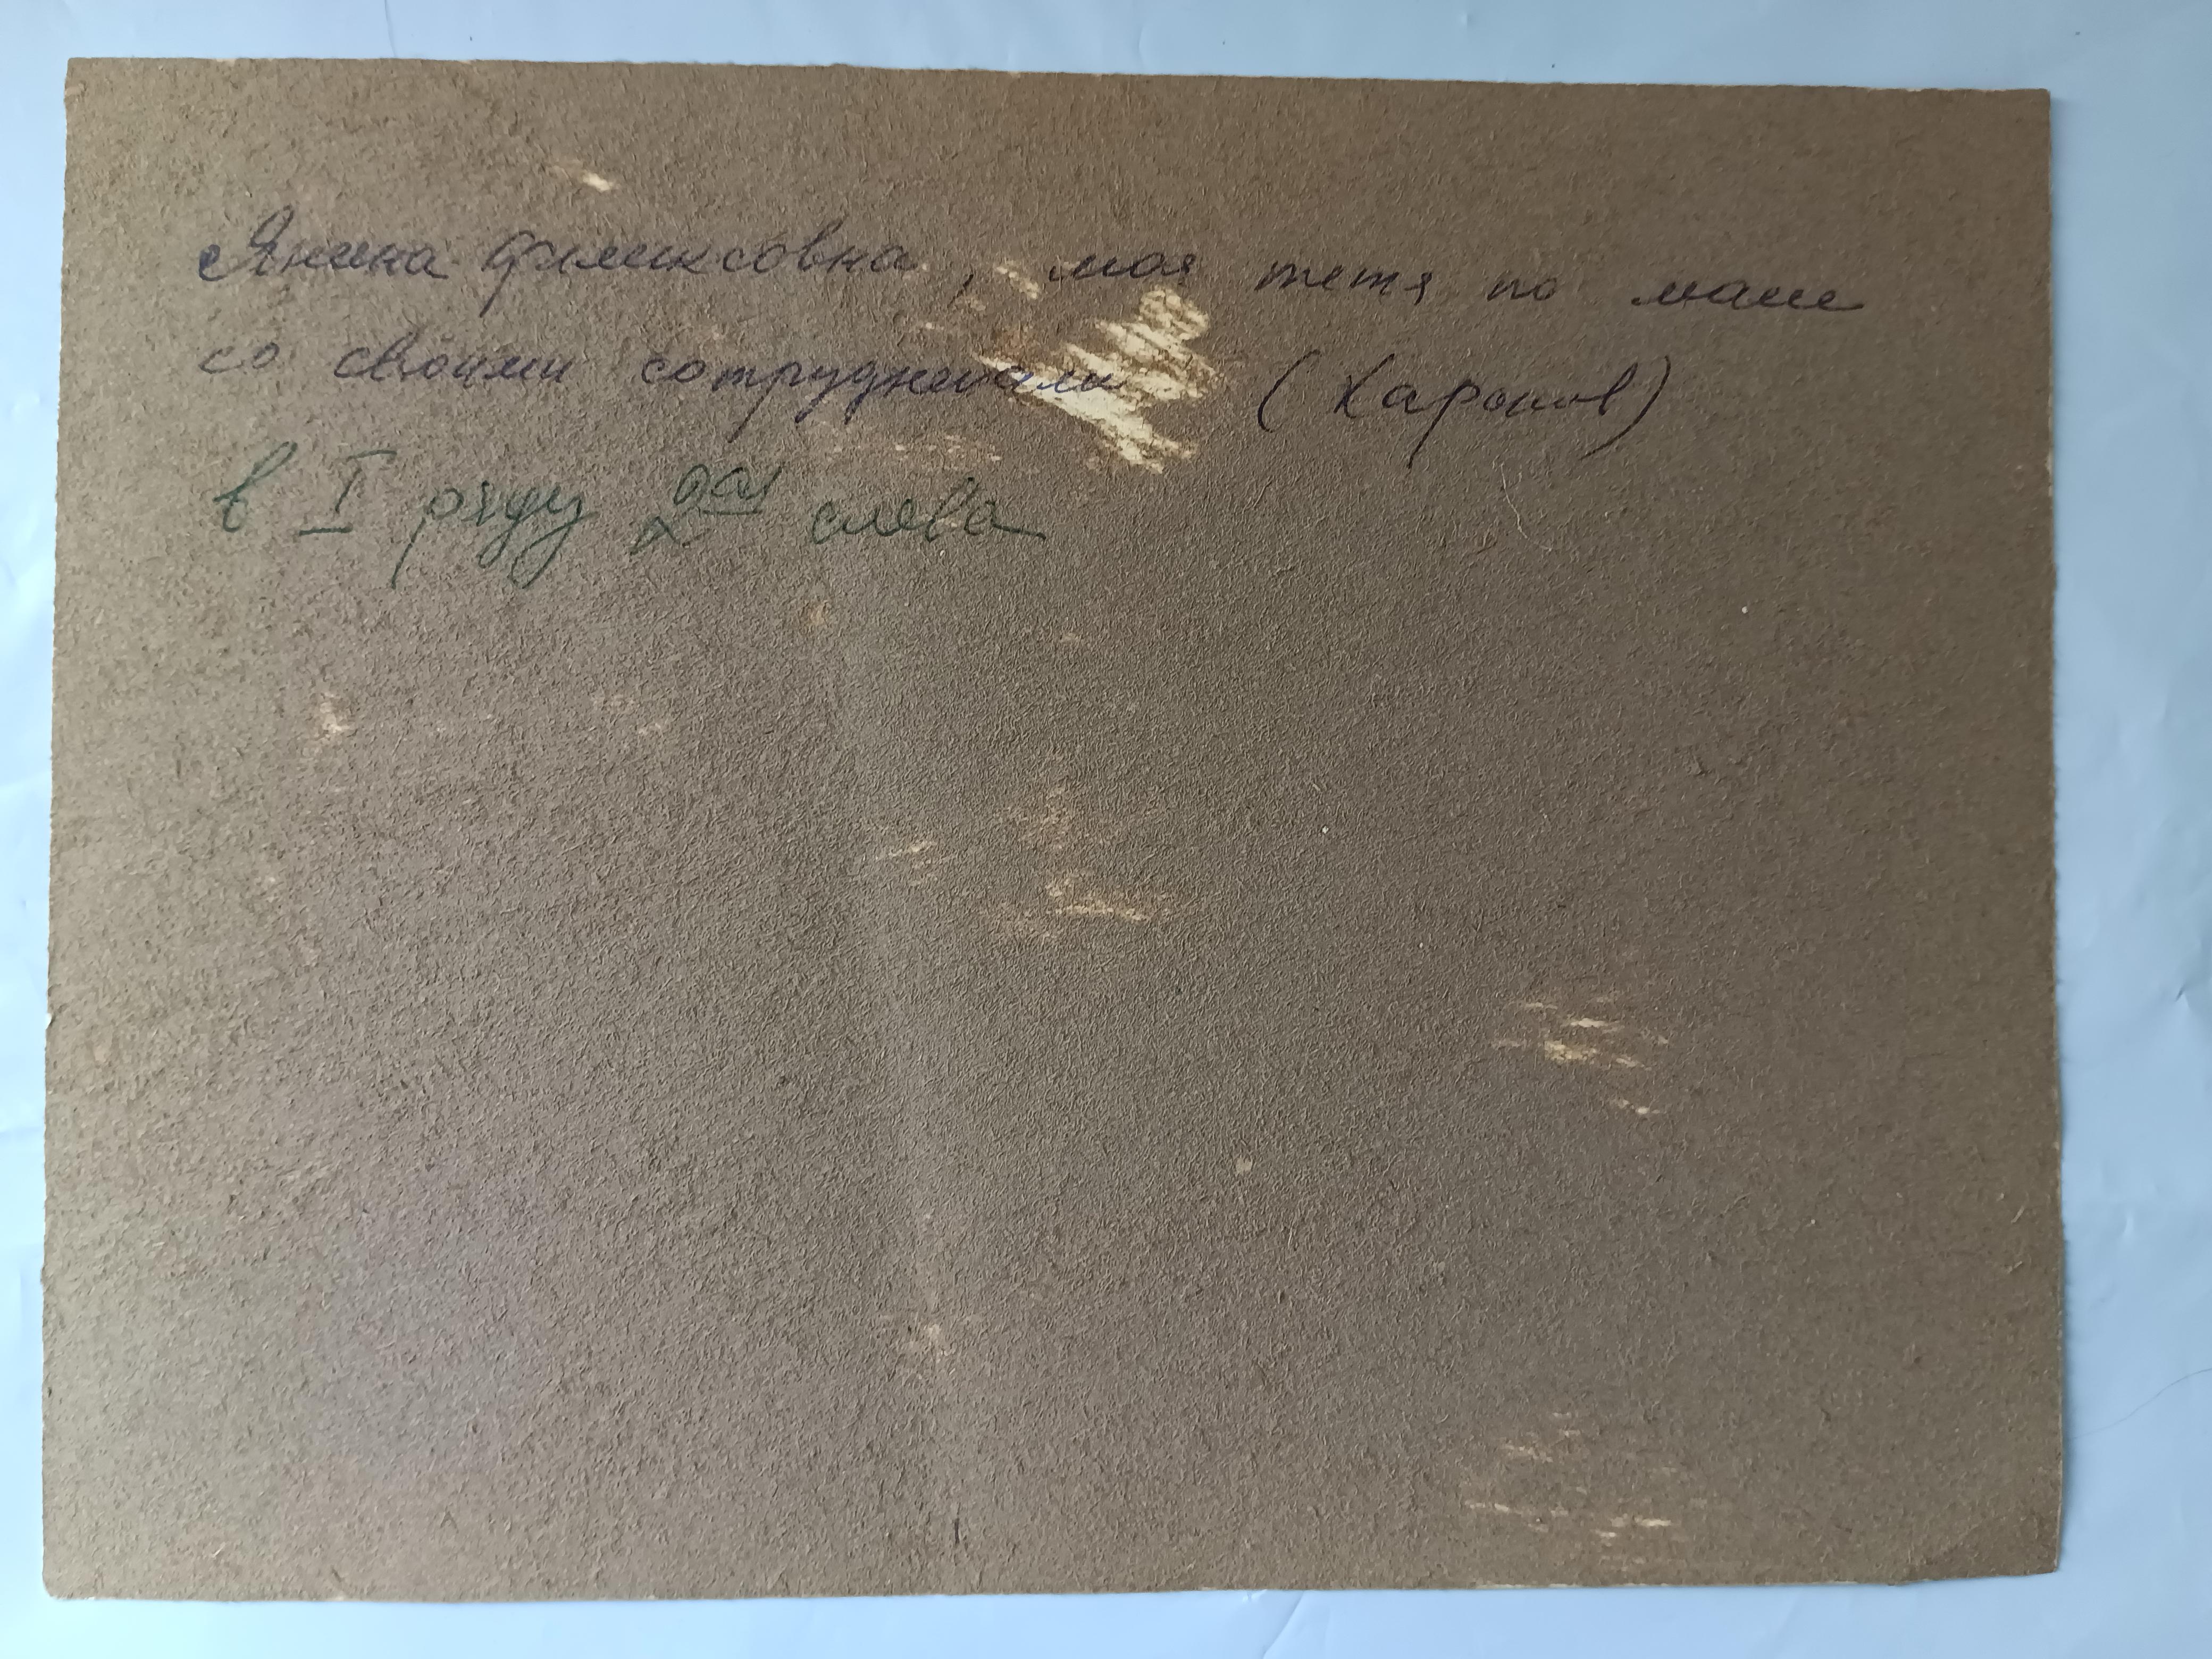 Янина Феликсовна, моя тетя по маме
со своими сотрудниками (Харьков)
в I ряду 2ая слева